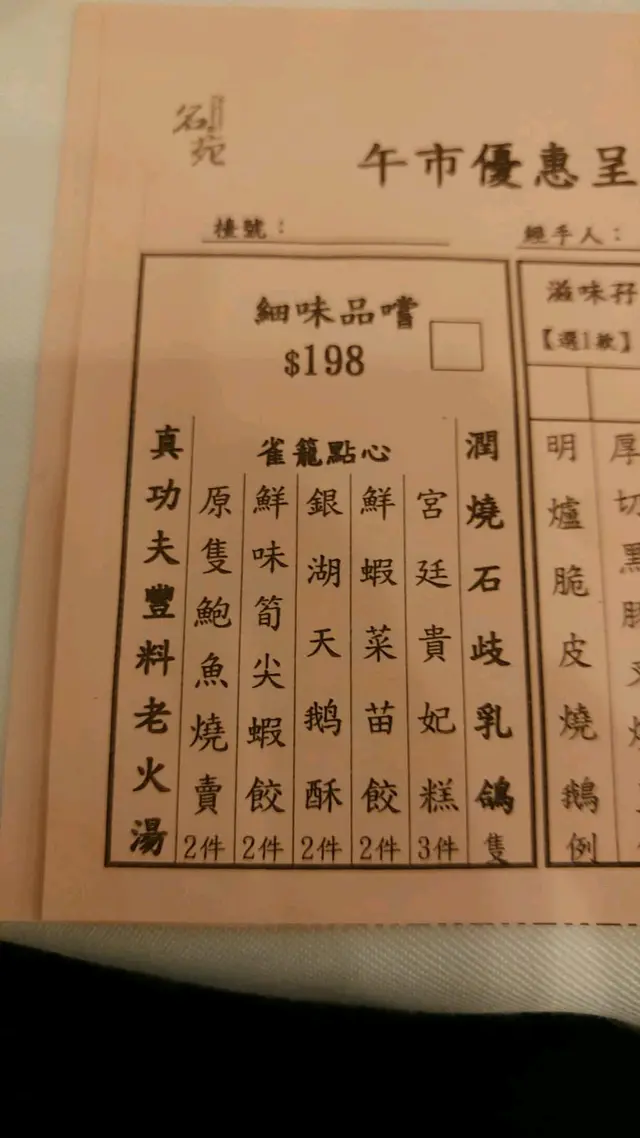 名苑
午市優惠呈
檯號：
經手人：
細味品嚐
$198
潤燒石歧乳鴿 隻
雀籠點心
宮廷貴妃糕 3件
鮮蝦菜苗餃 2件
銀湖天鵝酥 2件
鮮味筍尖蝦餃 2件
原隻鮑魚燒賣 2件
真功夫豐料老火湯
滋味孖
【選1款】
厚切黑豚叉
明爐脆皮燒鵝 例